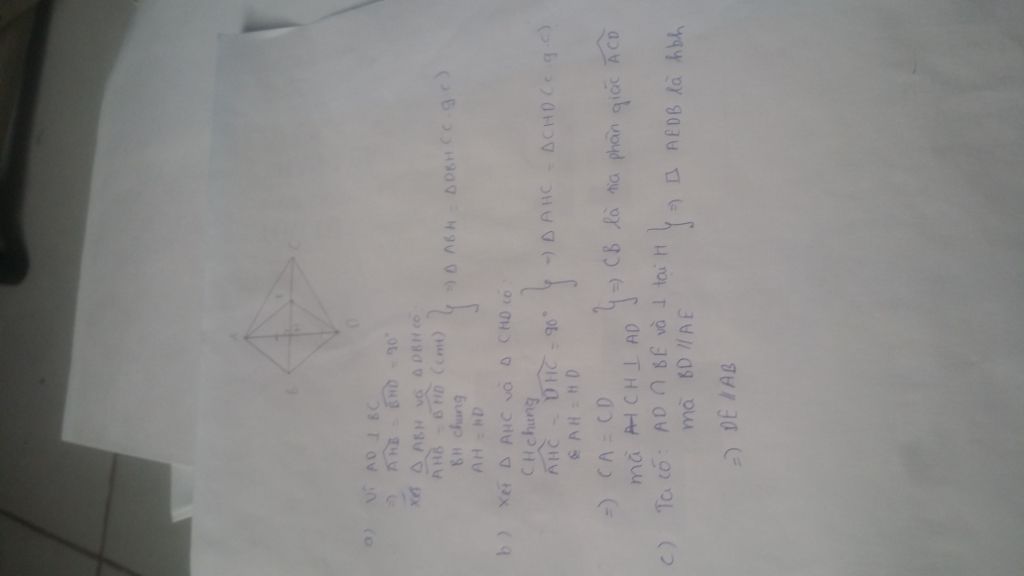 A
B
C
D
H
E
a) Vì AD ⊥ BC
=> \widehat{AHB} = \widehat{BHD} = 90°
Xét Δ ABH và Δ DBH có:
\widehat{AHB} = \widehat{BHD} (cmH)
BH chung
AH = HD
} => Δ ABH = Δ DBH (c.g.c)
b) Xét Δ AHC và Δ CHD có:
CH chung
\widehat{AHC} = \widehat{DHC} = 90°
AH = HD
} => Δ AHC = Δ CHD (c.g.c)
=> CA = CD
mà CH ⊥ AD
} => CB là tia phân giác \widehat{ACD}
c) Ta có: AD ∩ BE và ⊥ tại H
mà BD // AE
} => □ AEDB là hbh
=> DE // AB